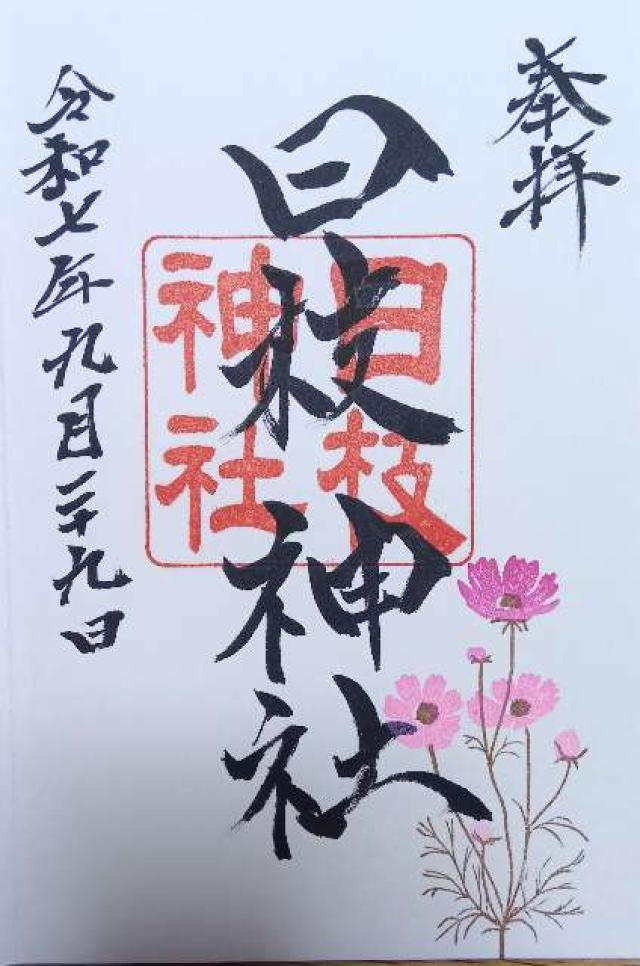 奉拝
日枝神社
日枝
神社
令和七年九月二十九日